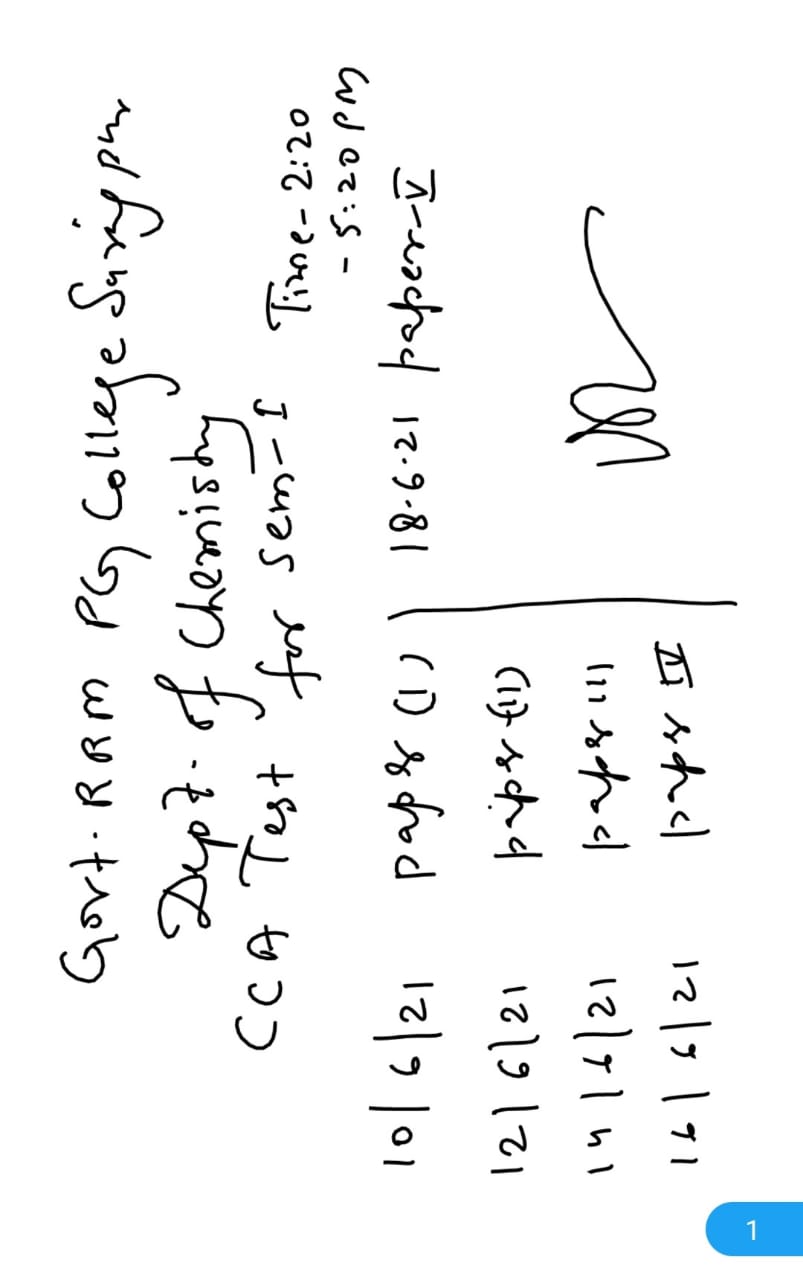 Govt. RRM PG College Surajpur
Deptt. of Chemistry
CCA Test for Sem-I Time- 2:20
- 5:20 PM
10/6/21 paper (I) 18.6.21 paper-V
12/6/21 paper (II)
14/6/21 paper III
16/6/21 paper IV
1